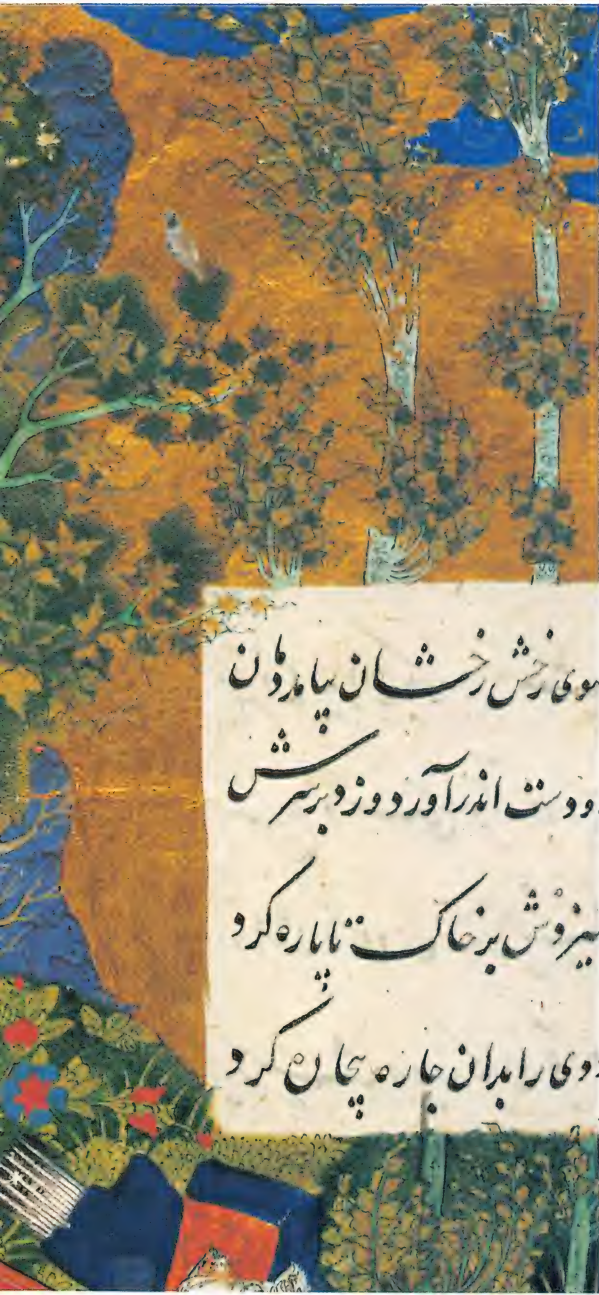 سوی رخش رخشان بیامد دمان
دو دست اندر آورد و زد بر سرش
بر خاک تا پاره کرد
ددی را بدان چاره بیچاره کرد